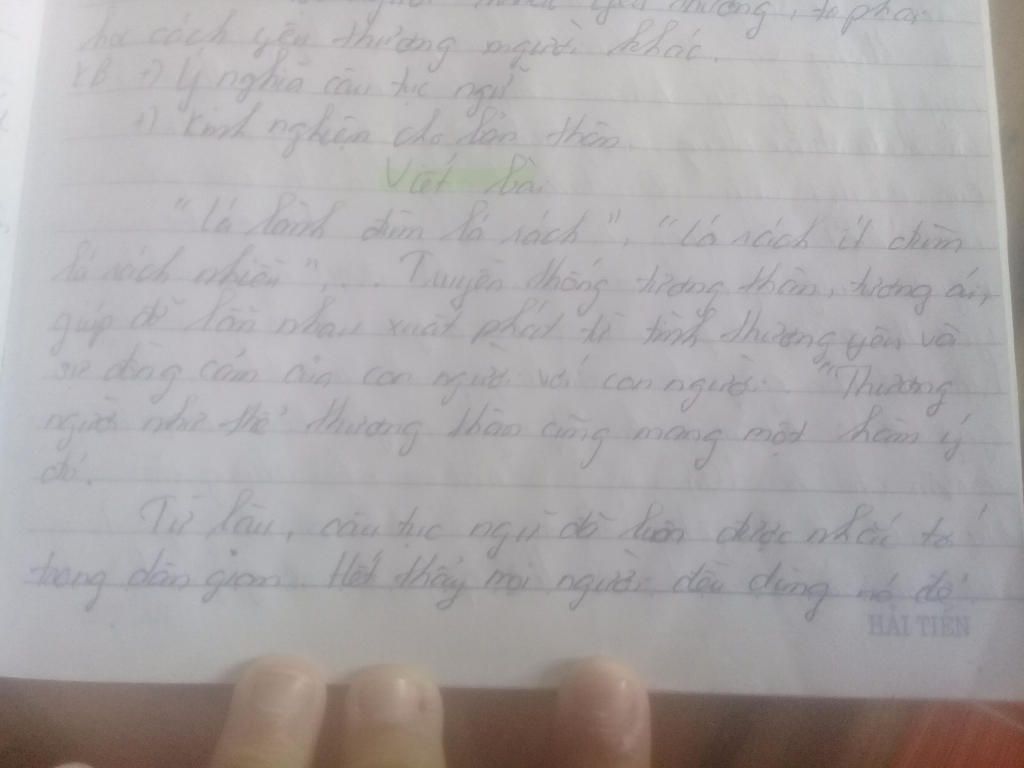 người yêu thương, ta phải
học cách yêu thương người khác.
KB +) Ý nghĩa câu tục ngữ
+) Kinh nghiệm cho bản thân.
Viết bài
"Lá lành đùm lá rách", "Lá rách ít đùm
lá rách nhiều",... Truyền thống tương thân, tương ái,
giúp đỡ lẫn nhau xuất phát từ tình thương yêu và
sự đồng cảm của con người với con người. "Thương
người như thể thương thân cũng mang một hàm ý
đó.
Từ lâu, câu tục ngữ đã luôn được nhắc tới
trong dân gian. Hết thảy mọi người đều dùng nó để
HẢI TIẾN